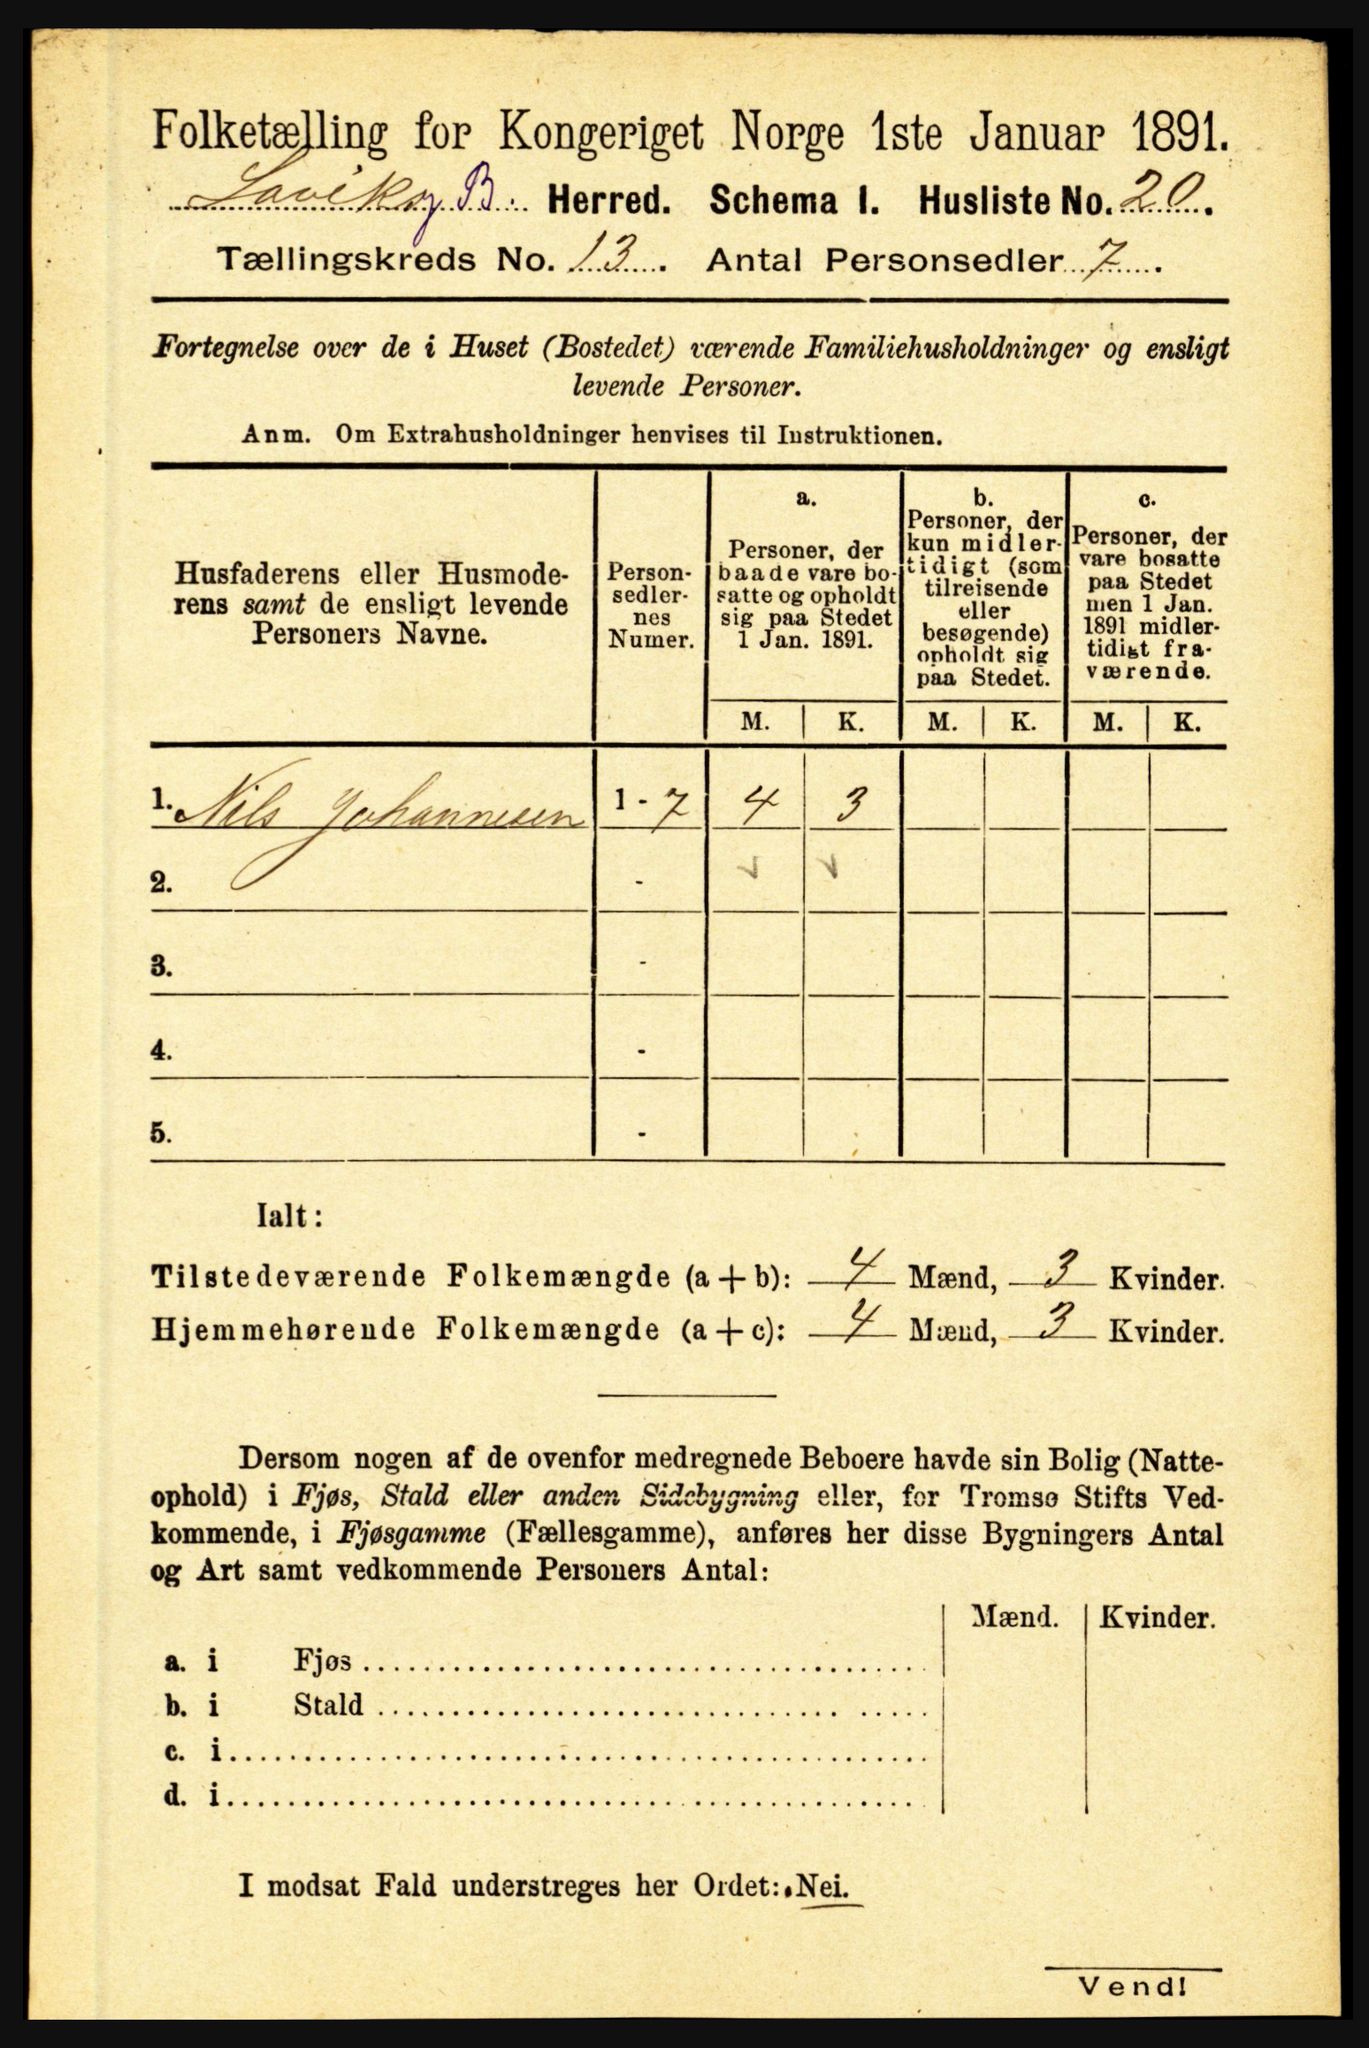 Folketælling for Kongeriget Norge 1ste Januar 1891.
Laviks og B. Herred. Schema I. Husliste No. 20.
Tællingskreds No. 13. Antal Personsedler 7.
Fortegnelse over de i Huset (Bostedet) værende Familiehusholdninger og ensligt
levende Personer.
Anm. Om Extrahusholdninger henvises til Instruktionen.
Husfaderens eller Husmode-
rens samt de ensligt levende
Personers Navne.
Person-
sedler-
nes
Numer.
a.
Personer, der
baade vare bo-
satte og opholdt
sig paa Stedet
1 Jan. 1891.
b.
Personer, der
kun midler-
tidigt (som
tilreisende
eller
besøgende)
opholdt sig
paa Stedet.
c.
Personer, der
vare bosatte
paa Stedet
men 1 Jan.
1891 midler-
tidigt fra-
værende.
M. K. M. K. M. K.
1. Nils Johannesen 1 - 7 4 3
2. -
3. -
4. -
5. -
Ialt:
Tilstedeværende Folkemængde (a + b): 4 Mænd, 3 Kvinder.
Hjemmehørende Folkemængde (a + c): 4 Mænd, 3 Kvinder.
Dersom nogen af de ovenfor medregnede Beboere havde sin Bolig (Natte-
ophold) i Fjøs, Stald eller anden Sidebygning eller, for Tromsø Stifts Ved-
kommende, i Fjøsgamme (Fællesgamme), anføres her disse Bygningers Antal
og Art samt vedkommende Personers Antal:
Mænd. Kvinder.
a. i Fjøs
b. i Stald
c. i
d. i
I modsat Fald understreges her Ordet: Nei.
Vend!